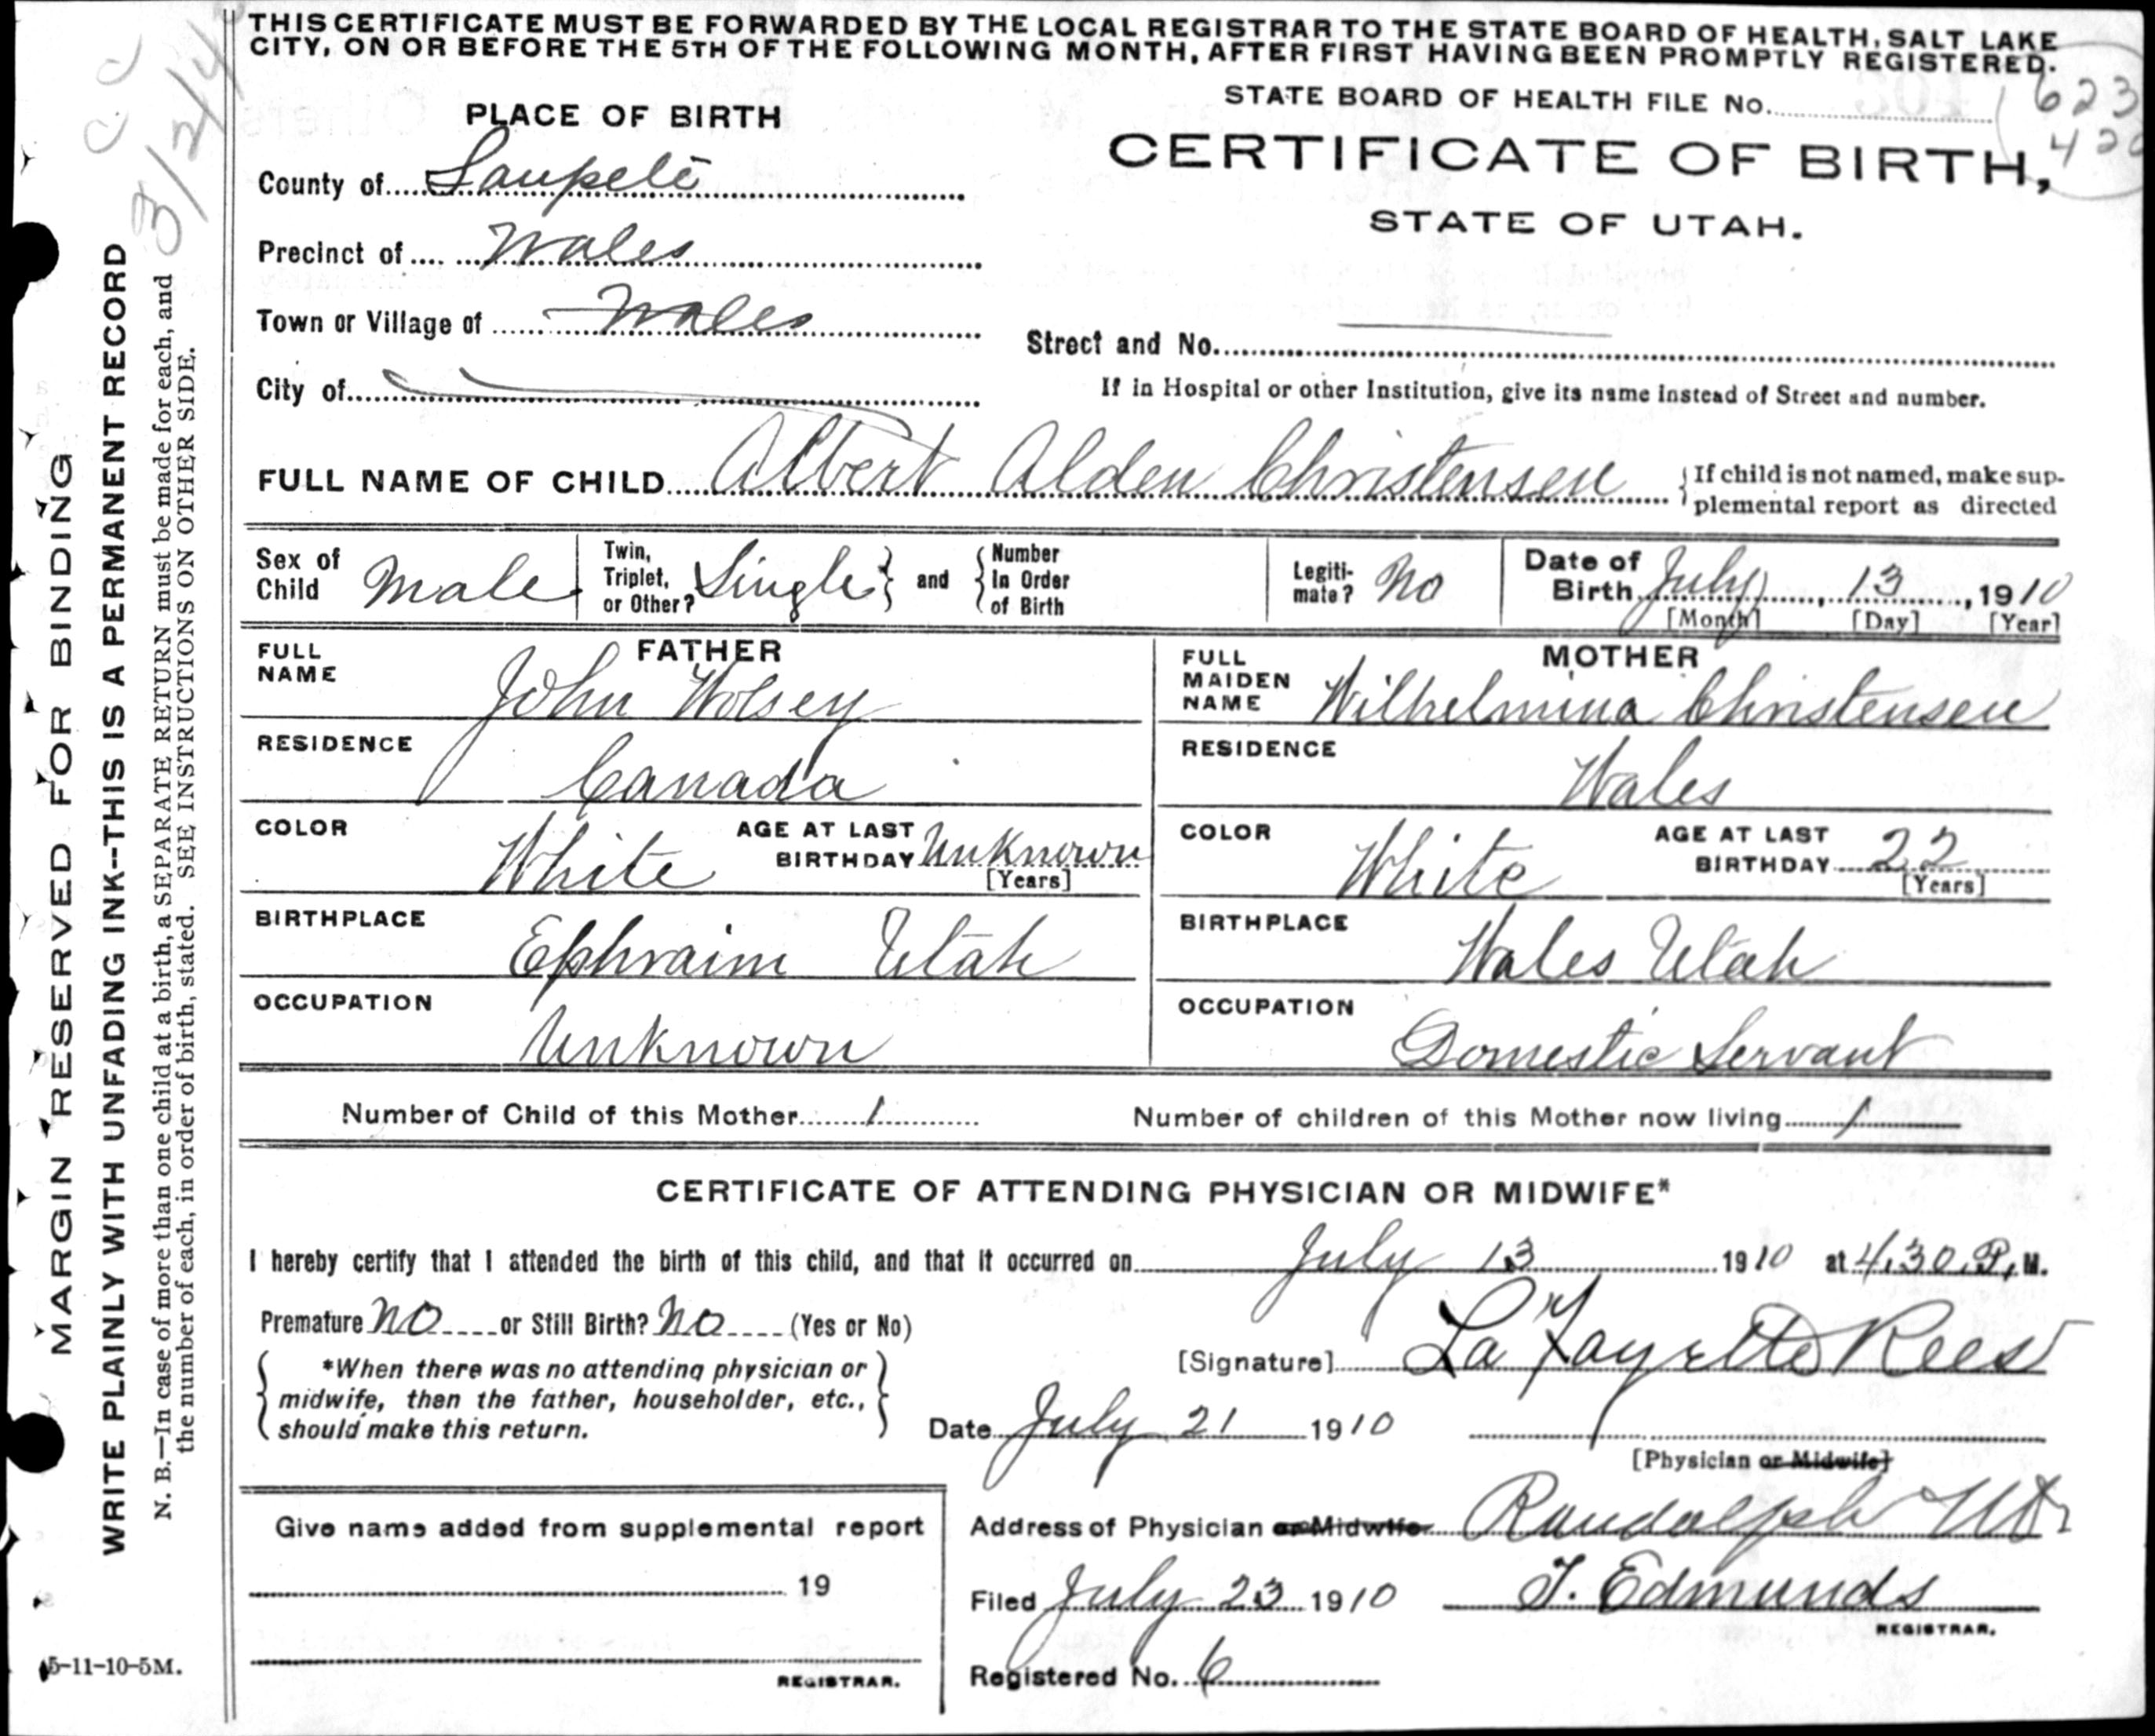 THIS CERTIFICATE MUST BE FORWARDED BY THE LOCAL REGISTRAR TO THE STATE BOARD OF HEALTH, SALT LAKE
CITY, ON OR BEFORE THE 5TH OF THE FOLLOWING MONTH, AFTER FIRST HAVING BEEN PROMPTLY REGISTERED.
STATE BOARD OF HEALTH FILE No.
623
420
CERTIFICATE OF BIRTH,
STATE OF UTAH.
PLACE OF BIRTH
County of Sanpete
Precinct of Wales
Town or Village of Wales
Street and No.
City of
If in Hospital or other Institution, give its name instead of Street and number.
FULL NAME OF CHILD Albert Alden Christensen
If child is not named, make sup-
plemental report as directed
Sex of Child Male
Twin, Triplet, or Other? Single and Number In Order of Birth
Legiti-mate? No
Date of Birth July, 13, 1910
[Month] [Day] [Year]
FATHER
FULL NAME John Wolsey
RESIDENCE Canada
COLOR White AGE AT LAST BIRTHDAY Unknown
[Years]
BIRTHPLACE Ephraim Utah
OCCUPATION Unknown
MOTHER
FULL MAIDEN NAME Wilhelmina Christensen
RESIDENCE Wales
COLOR White AGE AT LAST BIRTHDAY 22
[Years]
BIRTHPLACE Wales Utah
OCCUPATION Domestic Servant
Number of Child of this Mother 1 Number of children of this Mother now living 1
CERTIFICATE OF ATTENDING PHYSICIAN OR MIDWIFE*
I hereby certify that I attended the birth of this child, and that it occurred on July 13 1910 at 4.30 P. M.
Premature No or Still Birth? No (Yes or No)
*When there was no attending physician or
midwife, then the father, householder, etc.,
should make this return.
[Signature] La Fayette Rees
Date July 21 1910
[Physician or Midwife]
Address of Physician or Midwife Randolph Ut
Give name added from supplemental report
19
REGISTRAR.
Filed July 23 1910 T. Edmunds
REGISTRAR.
Registered No. 6
MARGIN RESERVED FOR BINDING
WRITE PLAINLY WITH UNFADING INK--THIS IS A PERMANENT RECORD
N. B.—In case of more than one child at a birth, a SEPARATE RETURN must be made for each, and
the number of each, in order of birth, stated. SEE INSTRUCTIONS ON OTHER SIDE.
5-11-10-5M.